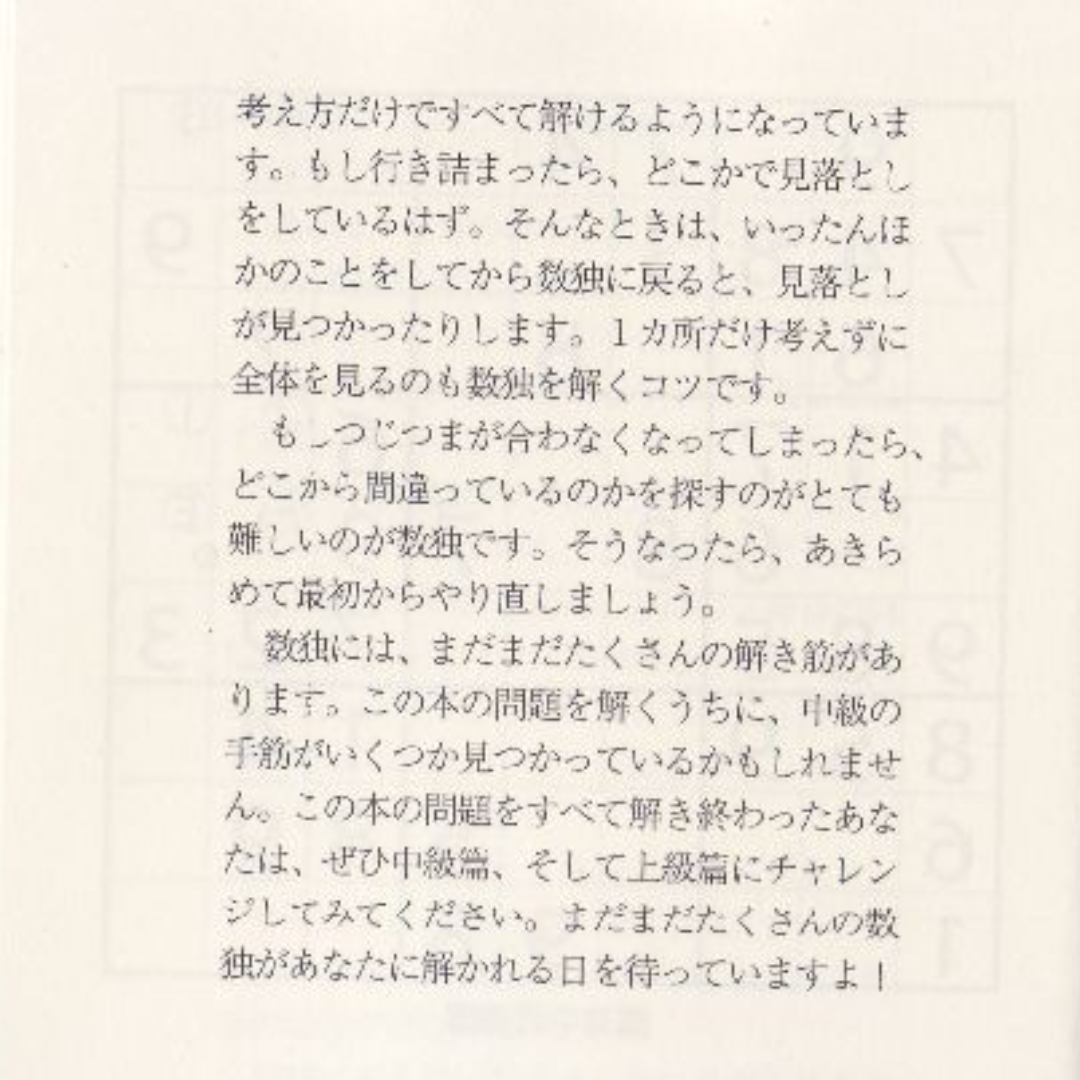 考え方だけですべて解けるようになっていま
す。もし行き詰まったら、どこかで見落とし
をしているはず。そんなときは、いったんほ
かのことをしてから数独に戻ると、見落とし
が見つかったりします。1カ所だけ考えずに
全体を見るのも数独を解くコツです。
もしつじつまが合わなくなってしまったら、
どこから間違っているのかを探すのがとても
難しいのが数独です。そうなったら、あきら
めて最初からやり直しましょう。
数独には、まだまだたくさんの解き筋があ
ります。この本の問題を解くうちに、中級の
手筋がいくつか見つかっているかもしれませ
ん。この本の問題をすべて解き終わったあな
たは、ぜひ中級篇、そして上級篇にチャレン
ジしてみてください。まだまだたくさんの数
独があなたに解かれる日を待っていますよ！